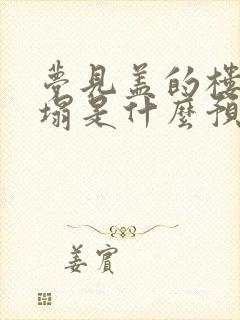 夢見蓋的樓
塌是什麼預
姜賓